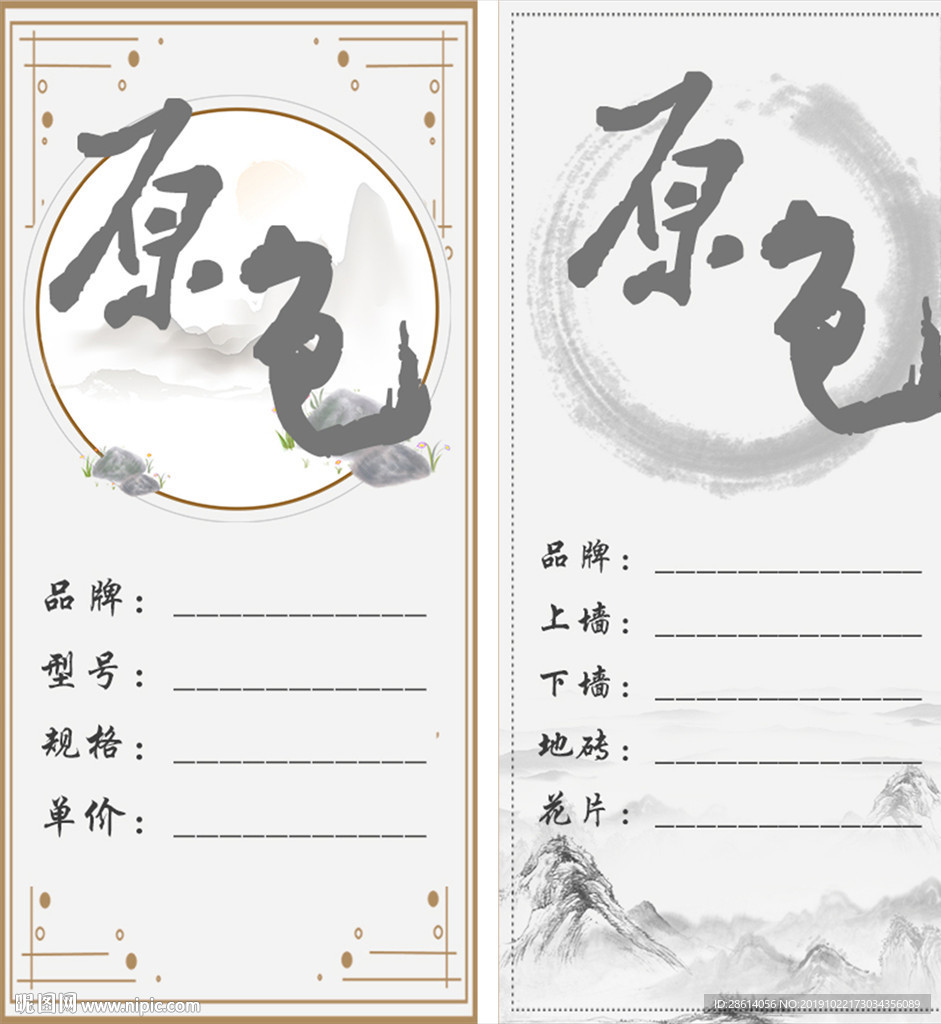 原色
品牌：____________
型号：____________
规格：____________
单价：____________
原色
品牌：_____________
上墙：_____________
下墙：_____________
地砖：_____________
花片：_____________
昵图网 www.nipic.com
ID:28614056 NO:20191022173034356089